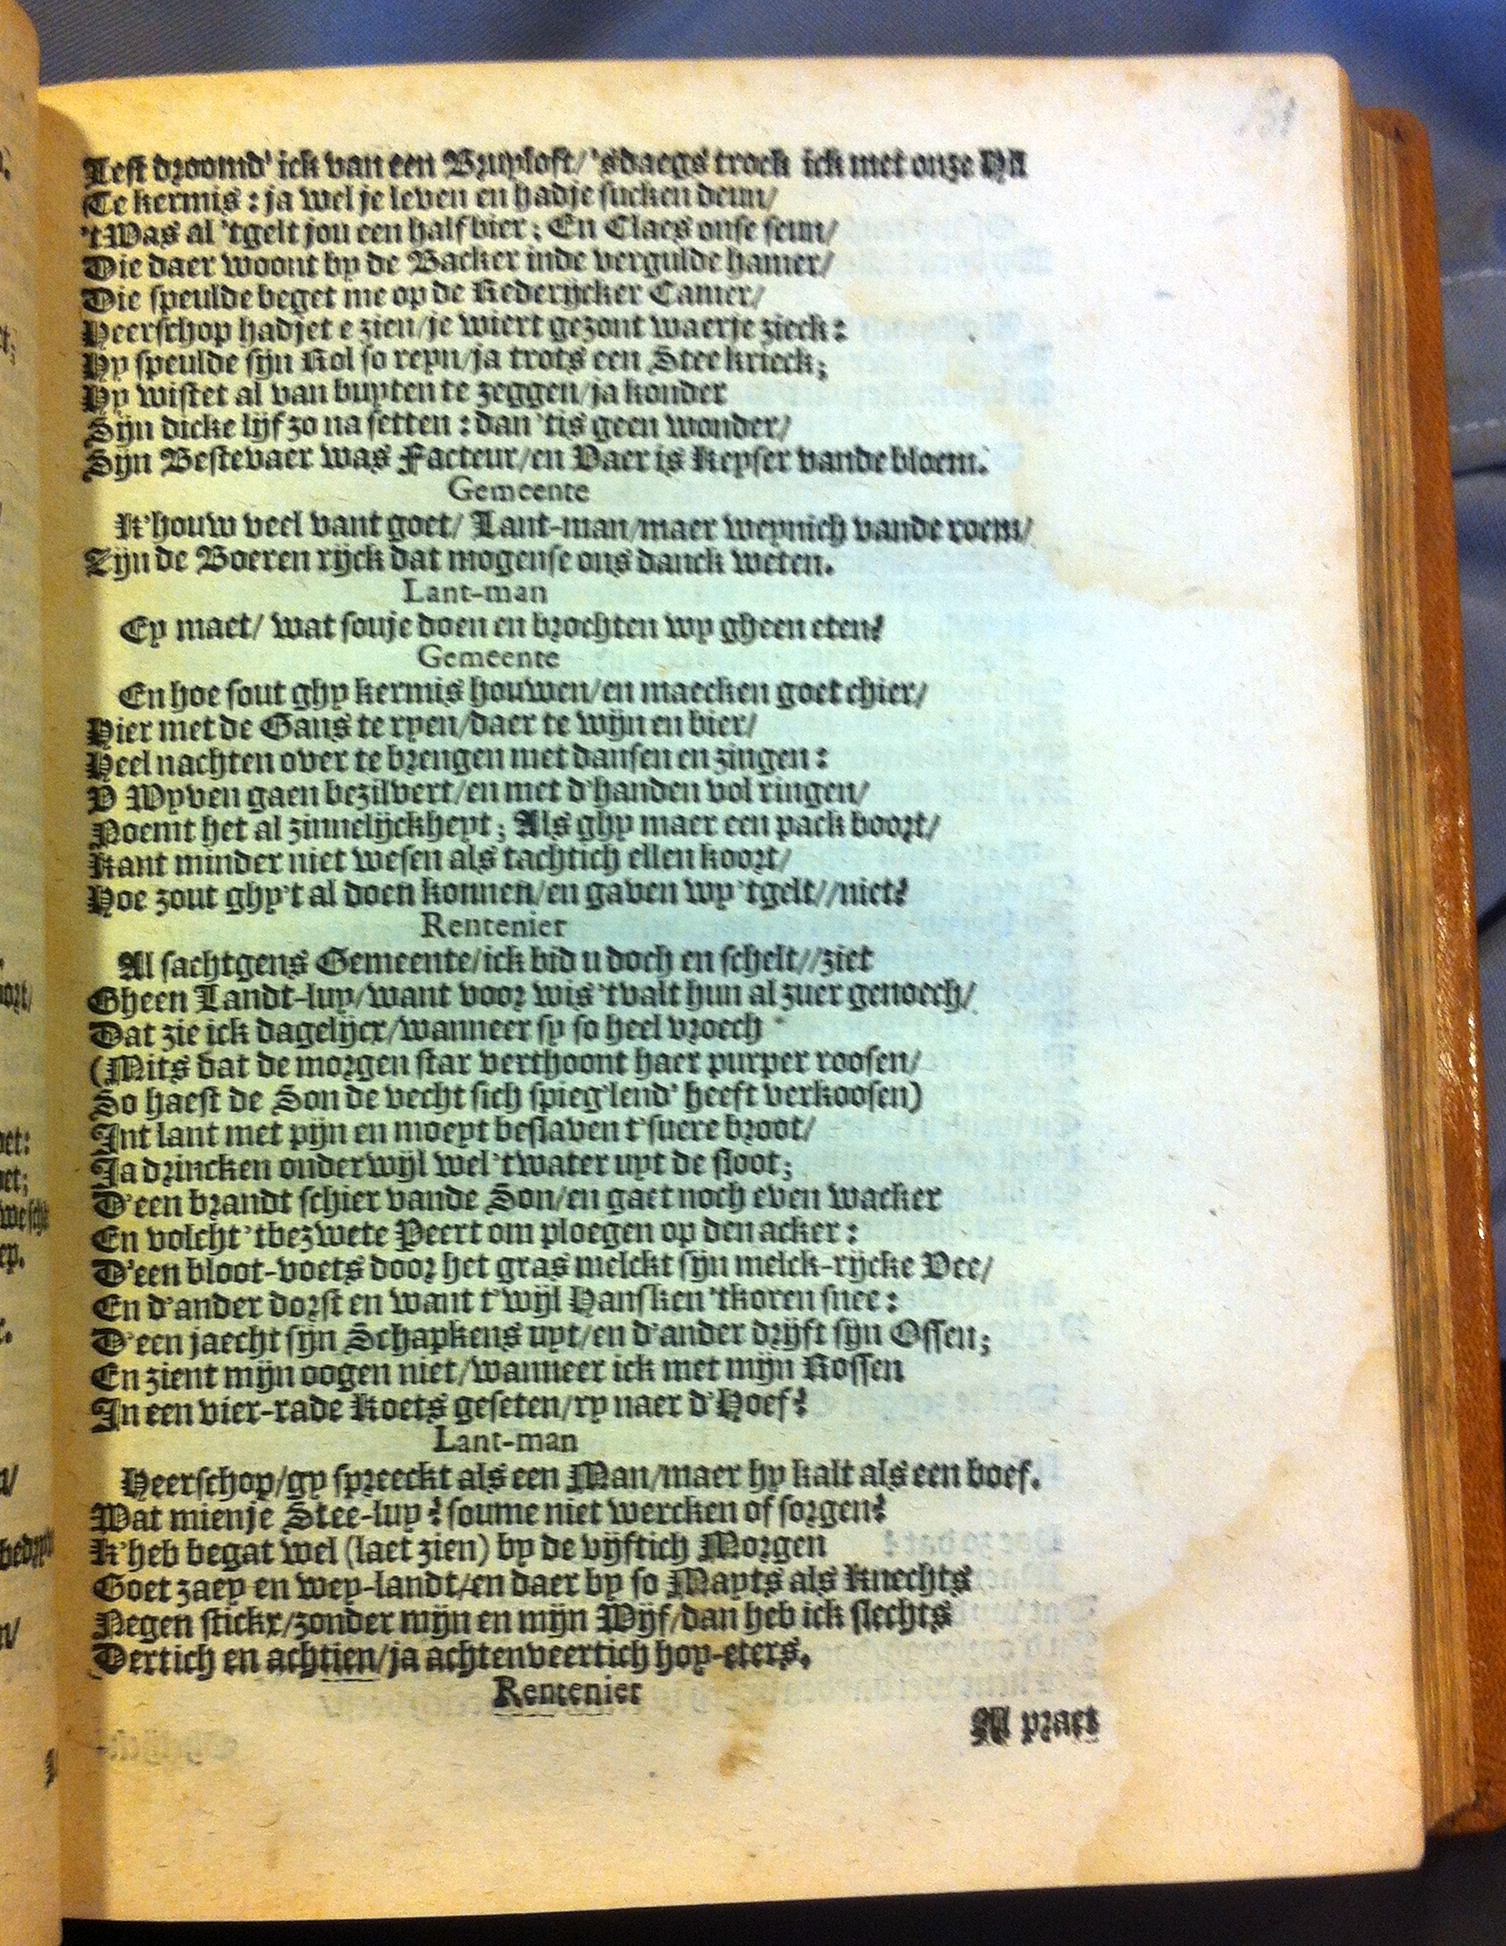 Lest droomd' ick van een Bruyloft/ 'sdaegs trock ick met onze
Te kermis: ja wel je leven en hadje sucken deun/
't Was al 'tgelt jou een half bier; En Claes onse seun/
Die daer woont by de Backer inde vergulde hamer/
Die speulde beget me op de Rederijcker Camer/
Heerschop hadjet e zien/je wiert gezont waerje zieck:
Hy speulde sijn Rol so reyn/ja trots een Stee krieck;
Hy wistet al van buyten te zeggen/ja konder
Sijn dicke lijf zo na setten: dan 'tis geen wonder/
Sijn Bestevaer was Facteur/en Vaer is Keyser vande bloem.
Gemeente
K'houw veel vant goet/ Lant-man/maer weynich vande roem/
Zijn de Boeren rijck dat mogense ons danck weten.
Lant-man
Ey maet/ wat souje doen en brochten wy gheen eten?
Gemeente
En hoe sout ghy kermis houwen/en maecken goet chier/
Hier met de Gans te ryen/daer te wijn en bier/
Heel nachten over te brengen met dansen en zingen:
V Wyven gaen bezilvert/en met d'handen vol ringen/
Noemt het al zinnelijckheyt; Als ghy maer een pack boort/
Kant minder niet wesen als tachtich ellen koort/
Hoe zout ghy't al doen konnen/en gaven wy 'tgelt//niet?
Rentenier
Al sachtgens Gemeente/ick bid u doch en schelt//ziet
Gheen Landt-luy/want voor wis 'tvalt hun al zuer genoech/
Dat zie ick dagelijcx/wanneer sy so heel vroech
(Mits dat de morgen star verthoont haer purper roosen/
So haest de Son de vecht sich spieg'lend' heeft verkoosen)
Int lant met pijn en moeyt beslaven t'suere broot/
Ja drincken onderwijl wel 'twater uyt de sloot;
D'een brandt schier vande Son/en gaet noch even wacker
En volcht 'tbezwete Peert om ploegen op den acker:
D'een bloot-voets door het gras melckt sijn melck-rijcke Vee/
En d'ander dorst en want t'wijl Hansken 'tkoren snee:
D'een jaecht sijn Schapkens uyt/en d'ander drijft sijn Ossen;
En zient mijn oogen niet/wanneer ick met mijn Rossen
In een vier-rade Koets geseten/ry naer d'Hoef?
Lant-man
Heerschop/gy spreeckt als een Man/maer hy kalt als een boef.
Wat mienje Stee-luy? soume niet wercken of sorgen?
K'heb begat wel (laet zien) by de vijftich Morgen
Goet zaey en wey-landt/en daer by so Mayts als Knechts
Negen stickx/zonder mijn en mijn Wijf/dan heb ick slechts
Dertich en achtien/ja achtenveertich hoy-eters.
Rentenier
Al praet